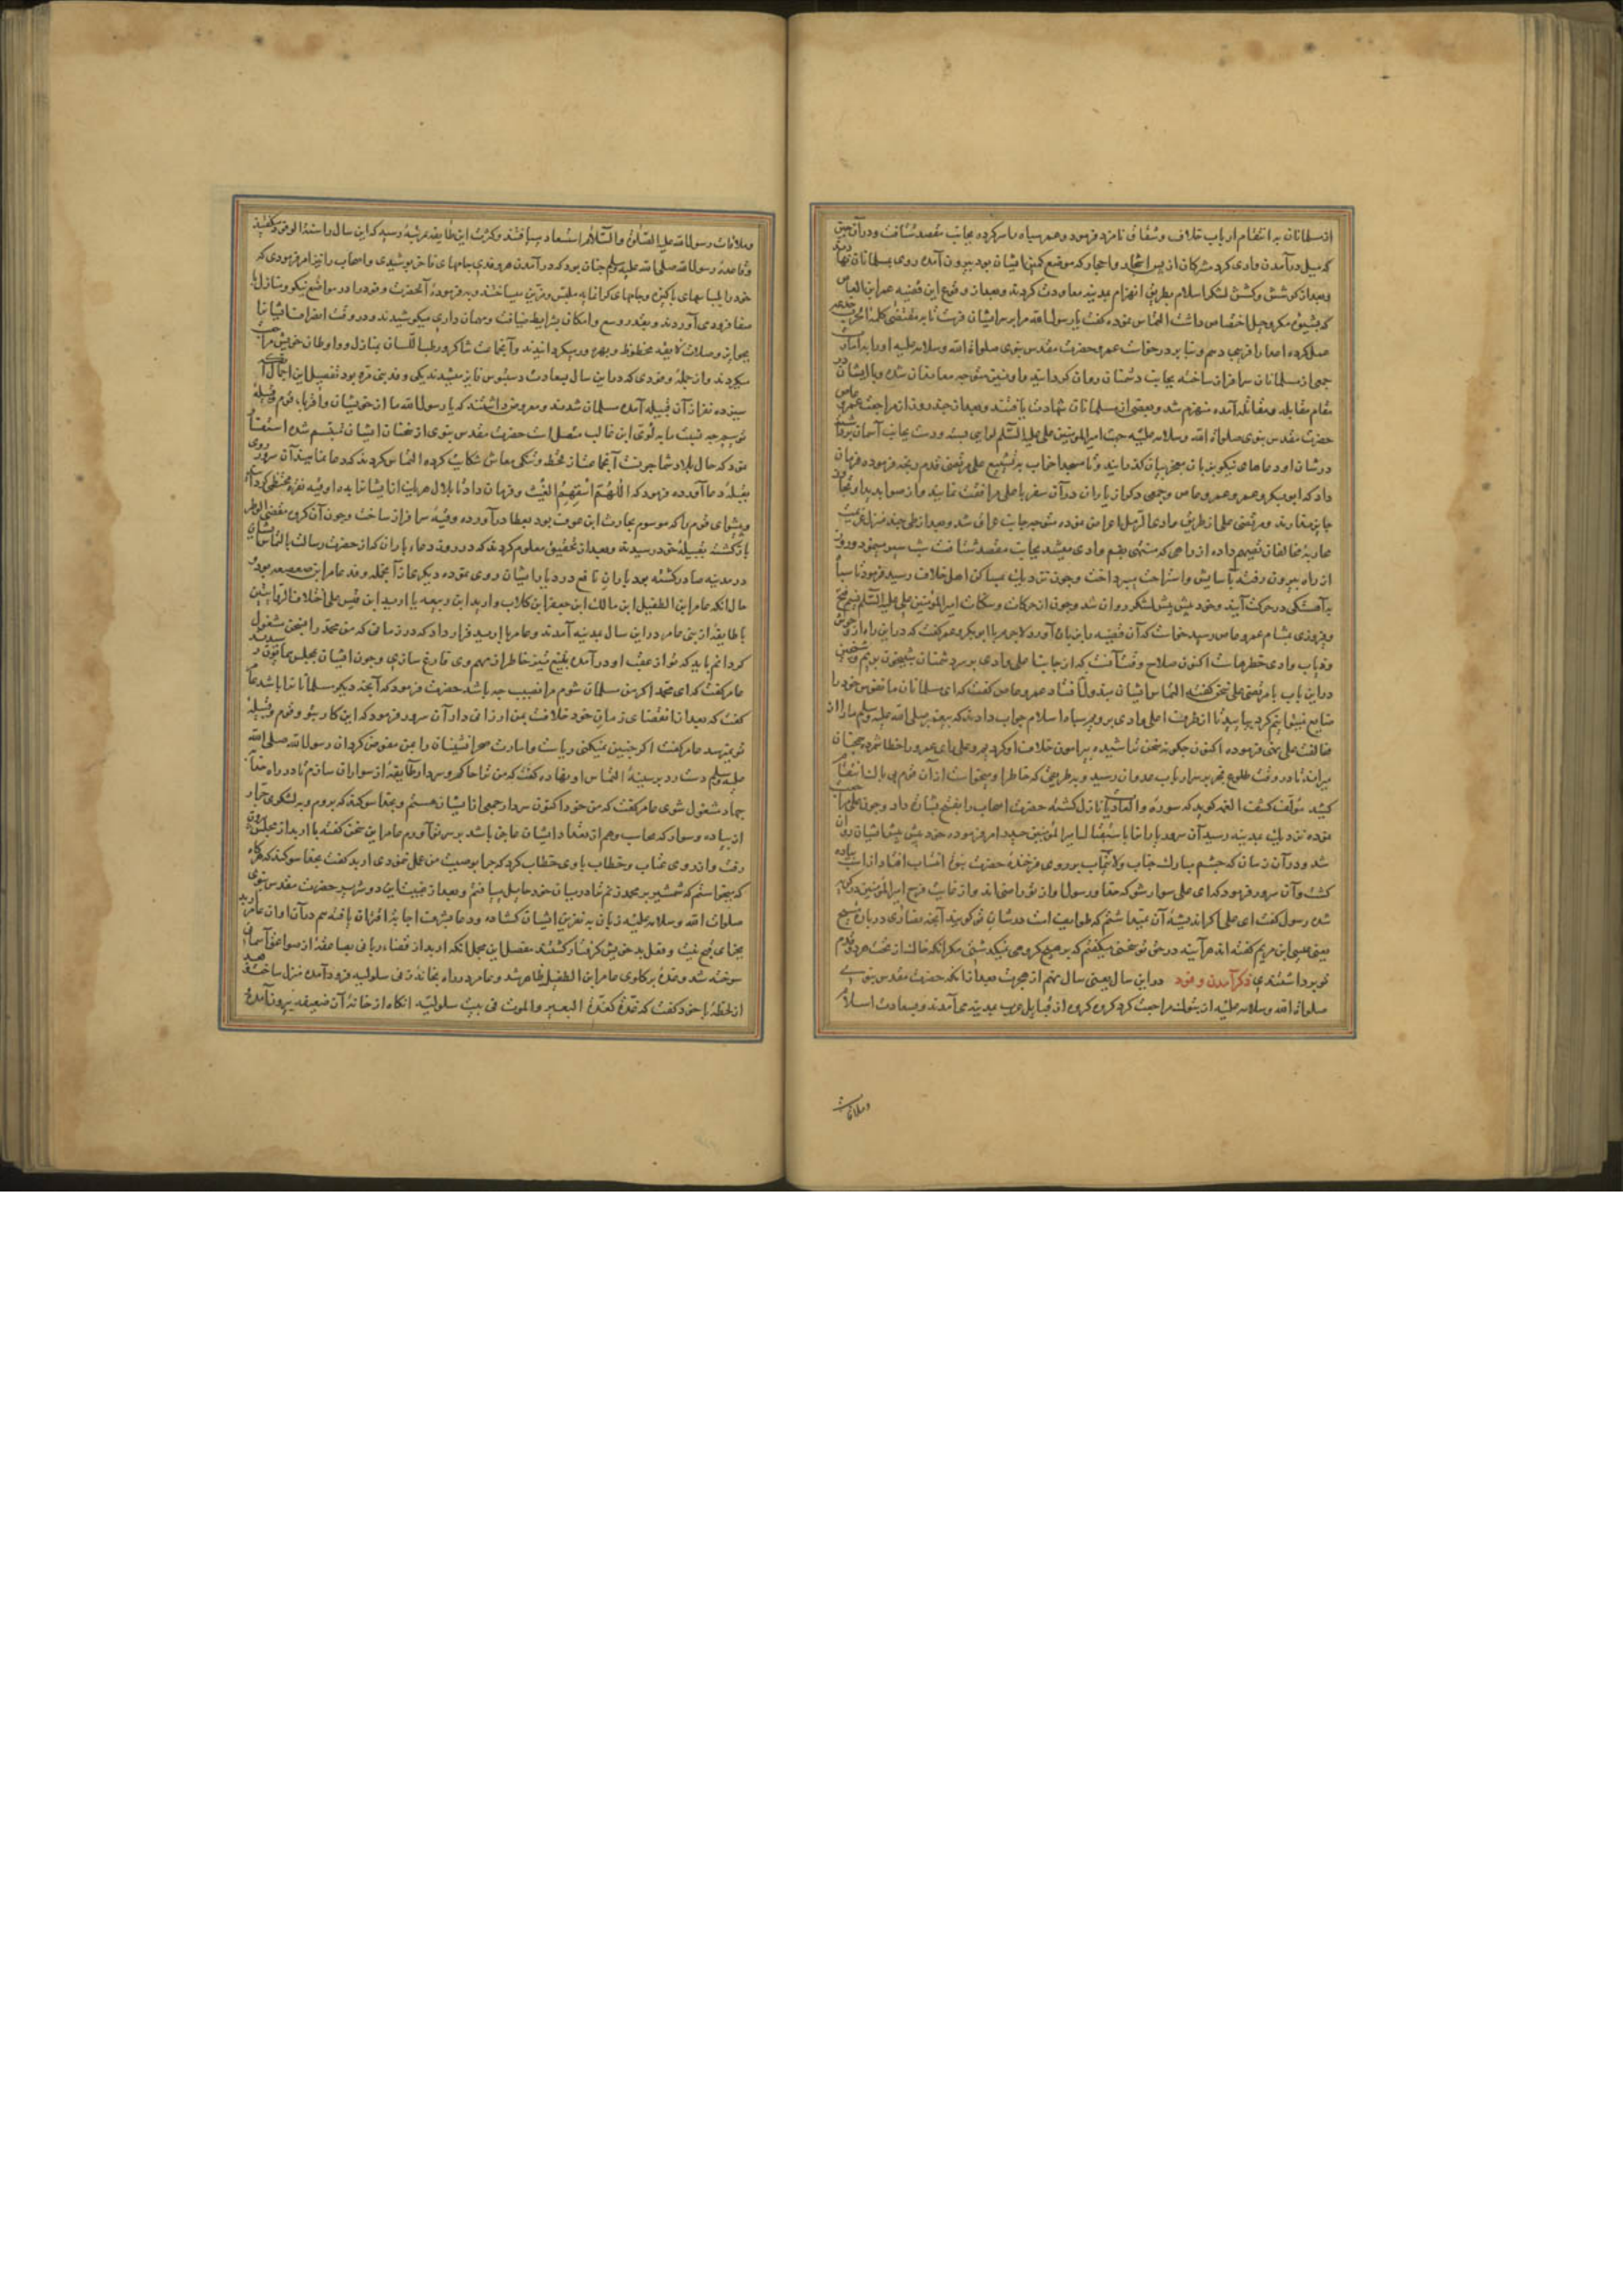 از مسلمانان به انتقام ارباب خلاف و شقاق نامزد فرمود و عمر سپاه را سر کرده بجانب مقصد شتافت و در آن حین
که میل در آمدن وادی کرد مشرکان از پس اشجار و احجار که موضع کمین ایشان بود بیرون آمده روی بمسلمانان نهادند
و بعد از کوشش و کشش لشکر اسلام بطریق انهزام بمدینه معاودت کردند و بعد از وقوع این قضیه عمرو ابن العاص
که بشیوه مکر و حیل اختصاص داشت التماس نموده گفت یا رسول الله مرا بر سر ایشان فرست تا بر مقتضی کلمة الحرب خدعه
عمل کرده اعدا را فریبی دهم و بنا بر درخواست عمرو حضرت مقدس نبوی صلوات الله و سلامه علیه او را بامارت
جمعی از مسلمانان سرافراز ساخته بجانب دشمنان روان کردانید و او نیز متوجه معاندان شده و با ایشان در
مقام مقابله و مقاتله آمده منهزم شد و بعضی از مسلمانان شهادت یافتند و بعد از چند روز از مراجعت عمرو عاص
حضرت مقدس نبوی صلوات الله و سلامه علیه جهت امیر المؤمنین علی علیه السلم لوایی بست و دست بجانب آسمان برداشته
در شان او دعاهای نیکو بزبان معجز بیان کذرانید و تا مسجد احزاب به تشییع علی مرتضی قدم رنجه فرمود و فرمان
داد که ابو بکر و عمر و عمرو عاص و جمعی دیکر از یاران در آن سفر با علی مرافقت نمایند و از صوابدید او تجاوز
جایز ندارند و مرتضی علی از طریق وادی الرمل اعراض نموده متوجه جانب عراق شد و بعد از طی چند منزل عزیمت
محاربه مخالفان تصمیم داده از راهی که منتهی بفم وادی میشد بجانب مقصد شتافت شب سیر مینمود و روز
از راه بیرون رفته بآسایش و استراحت میپرداخت و چون نزدیک بمساکن اهل خلاف رسید فرمود تا سپاه
به آهستکی در حرکت آیند و خود پیش پیش لشکر روان شد و چون از حرکات و سکنات امیر المؤمنین علی علیه السلم نسیم فتح
و فیروزی بمشام عمرو عاص رسید خواست که آن قضیه را بزیان آورد لاجرم با ابو بکر و عمر کفت که در این راه از وحوش
و ذیاب وادی خطرهاست اکنون صلاح وقت آنست که از جانب اعلی وادی بر سر دشمنان شبیخون بریم و شیخین
در این باب با مرتضی علی سخن کفته التماس ایشان مبذول نیفتاد عمرو عاص کفت که ای مسلمانان ما نفوس خود را
ضایع نمیتوانیم کرد بیایید تا از طرف اعلی وادی برویم سپاه اسلام جواب دادند که پیغمبر صلی الله علیه و سلم ما را از
مخالفت علی نهی فرموده اکنون چکونه سخن تو شنیده پیرامون خلاف او کردیم و علی رای عمرو را خطا شمرده همچنان
میراند تا در وقت طلوع فجر بر سر ارباب عدوان رسید و به طریقی که خاطر او میخواست از آن قوم بی باک انتقام
کشید مؤلف کشف الغمه کوید که سوره والعادیات نازل کشته حضرت اصحاب را بفتح بشارت داد و چون علی مراجعت
نموده نزدیک بمدینه رسید آن سرور یاران را باستقبال امیر المؤمنین حیدر امر فرموده خود پیش پیش ایشان روان
شد و در آن زمان که چشم مبارک جناب ولایتمآب بر روی فرخنده حضرت نبوت انتساب افتاد از اسب پیاده
کشت و آن سرور فرمود که ای علی سوار شو که خدا و رسول او از تو راضی اند و از غایت فرح امیر المؤمنین در کریه
شده رسول کفت ای علی اکر اندیشه آن نمیداشتم که طوایف امت در شان تو کویند آنچه نصاری در باره مسیح
یعنی عیسی ابن مریم کفته اند هر آینه در حق تو سخنی میکفتم که بر هیچ کروهی نمیکذشتی مکر آنکه خاک از تحت هر دو قدم
تو برداشتندی ذکر آمدن وفود در این سال یعنی سال نهم از هجرت بعد از آنکه حضرت مقدس نبوی
صلوات الله و سلامه علیه از تبوک مراجعت کرد کروه کروه از قبایل عرب بمدینه می آمدند و بسعادت اسلام
و ملاقات
و ملاقات رسول الله علیه الصلوة والسلام استسعاد مییافتند و کثرت این طایفه بمرتبه رسید که این سال را سنة الوفود میکفتند
و قاعده رسول الله صلی الله علیه و سلم چنان بود که در آمدن هر وفدی جامهای فاخر پوشیدی و اصحاب را نیز امر فرمودی که
خود را بلباسهای پاکیزه و جامهای کرانمایه ملبس و مزین میساختند و به فرموده آنحضرت وفود را در مواضع نیکو و منازل با
صفا فرود می آوردند و بقدر وسع و امکان بشرایط ضیافت و مهمان داری میکوشیدند و در وقت انصراف ایشان را
بجوایز و صلات لایقه محظوظ و بهره ور میکردانیدند و آنجماعت شاکر و رطب اللسان بمنازل و اوطان خویش مراجعت
میکردند و از جمله وفودی که در این سال بسعادت دستبوس فایز میشدند یکی وفد بنی مره بود تفصیل این اجمال آنکه
سیزده نفر از آن قبیله آمده مسلمان شدند و معروض داشتند که یا رسول الله ما از خویشان و اقربای قوم و قبیله
توییم چه نسب ما به لوی ابن غالب متصل است حضرت مقدس نبوی از سخنان ایشان تبسم شده استفسار
نمود که حال بلاد شما چونست آنجماعت از قحط و تنکی معاش شکایت کرده التماس کردند که دعا نمایند آن سرور روی
بقبله دعا آورده فرمود که اللهم اسقهم الغیث و فرمان داد تا بلال هر یک از ایشان را ده اوقیه نقره بخشید
و پیشوای قوم را که موسوم بحارث ابن عوف بود بعطا در آورده سرافراز ساخت و چون آن کروه مقضی الوطر
بازکشته بقبیله خود رسیدند و بعد از تحقیق معلوم کردند که در روز دعاء باران که از حضرت رسالت بالتماس ایشان
در مدینه صادر کشته بود باران نافع در دیار ایشان روی نموده دیکر از آنجمله وفد عامر ابن صعصعه بود
حال آنکه عامر ابن الطفیل ابن مالک ابن جعفر ابن کلاب و اربد ابن ربیعه یا اربد ابن قیس علی اختلاف الروایتین
با طایفه از بنی عامر در این سال بمدینه آمدند و عامر با اربد قرار داد که در زمانی که من محمد را بسخن مشغول
کردانم باید که تو از عقب او در آمده بتیغ تیز خاطر از مهم وی فارغ سازی و چون ایشان بمجلس همایون رسیدند
عامر کفت که ای محمد اکر من مسلمان شوم مرا نصیب چه باشد حضرت فرمود که آنچه دیکر مسلمانان را باشد عامر
کفت که بعد از انقضای زمان خود خلافت بمن ارزانی دار آن سرور فرمود که این کار بتو و قوم و قبیله
تو نمیرسد عامر کفت اکر چنین نمیکنی ریاست و امارت صحرانشینان را بمن مفوض کردان رسول الله صلی الله
علیه و سلم دست رد بر سینه التماس او نهاده کفت که من ترا حاکم و سردار طایفه از سواران سازم تا در راه خدا
جهاد مشغول شوی عامر کفت که من خود اکنون سردار جمعی از ایشان هستم و بخدا سوکند که بروم و بر لشکری جرار
از پیاده و سوار که محاسب وهم از تعداد ایشان عاجز باشد بر سر تو آورم عامر این سخن کفته با اربد از مجلس بیرون
رفت و از روی عتاب و خطاب با وی خطاب کرد که چرا بوصیت من عمل ننمودی اربد کفت بخدا سوکند که هر کاه
که میخواستم که شمشیر بر محمد زنم ترا در میان خود حایل مییافتم و بعد از غیبت این دو شریر حضرت مقدس نبوی
صلوات الله و سلامه علیه زبان به نفرین ایشان کشاده و دعا بشرف اجابة اقتران یافته هم در آن اوان عامر و اربد
بجزای قبح نیت و فعل بد خویش کرفتار کشتند مفصل این مجمل آنکه اربد از قضاء ربانی بصاعقه از صواعق آسمانی
سوخته شد و غده بر کلوی عامر ابن الطفیل ظاهر شد و عامر در راه بخانه زنی سلولیه فرود آمده منزل ساخت و بعد
از لحظه با خود کفت که غدة کغدة البعیر والموت فی بیت سلولیة آنکاه از خانه آن ضعیفه بیرون آمده